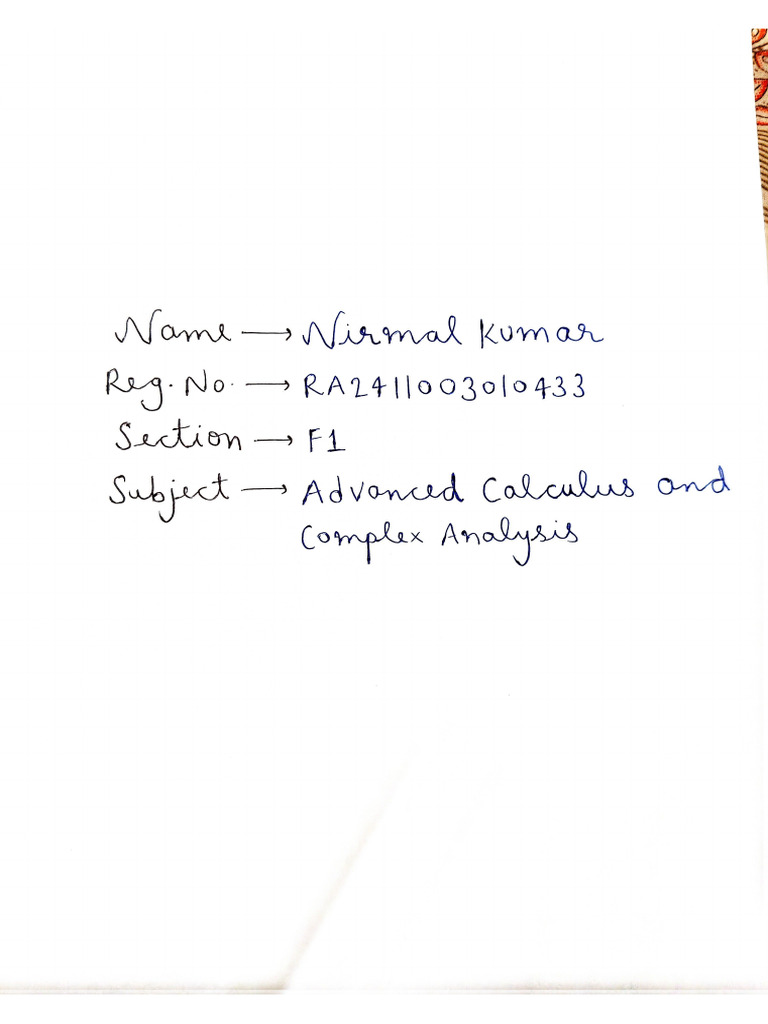 Name → Nirmal Kumar
Reg. No. → RA2411003010433
Section → F1
Subject → Advanced Calculus and
Complex Analysis